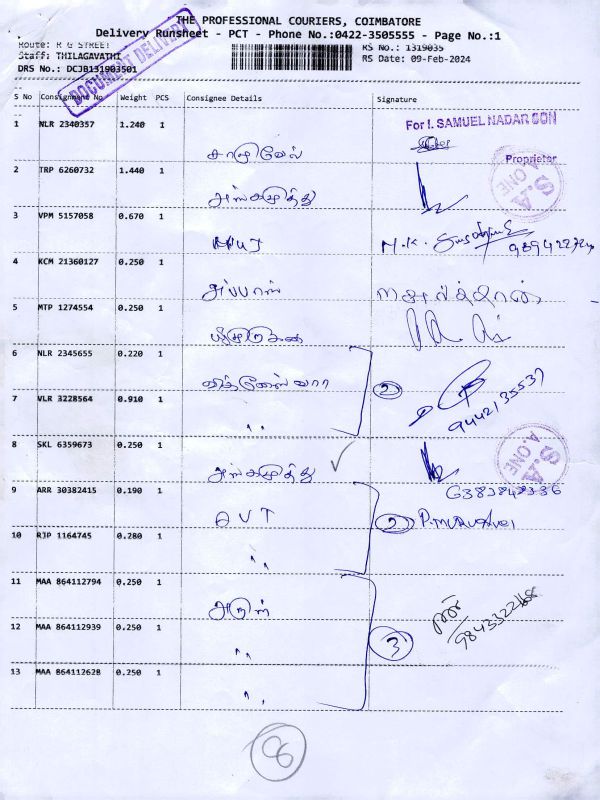 THE PROFESSIONAL COURIERS, COIMBATORE
Delivery Runsheet - PCT - Phone No.:0422-3505555 - Page No.:1
Route: R G STREET RS No.: 1319035
Staff: THILAGAVATHI RS Date: 09-Feb-2024
DRS No.: DCJB131903501
DOCUMENT DELIVERY
S No Consignment No Weight PCS Consignee Details Signature
1 NLR 2340357 1.240 1 For I. SAMUEL NADAR SON
சாமுவேல்
Proprietor
2 TRP 6260732 1.440 1
S.A
A.ONE
3 VPM 5157058 0.670 1
M.K.
4 KCM 21360127 0.250 1
அப்பாஸ்
5 MTP 1274554 0.250 1
6 NLR 2345655 0.220 1
2
7 VLR 3228564 0.910 1
"
9442135537
8 SKL 6359673 0.250 1
S.A
A.ONE
9 ARR 30382415 0.190 1
AVT 2 P.MURUGAVEL
10 RJP 1164745 0.280 1
"
11 MAA 864112794 0.250 1
அருள்
12 MAA 864112939 0.250 1
" 3
13 MAA 864112628 0.250 1
"
8